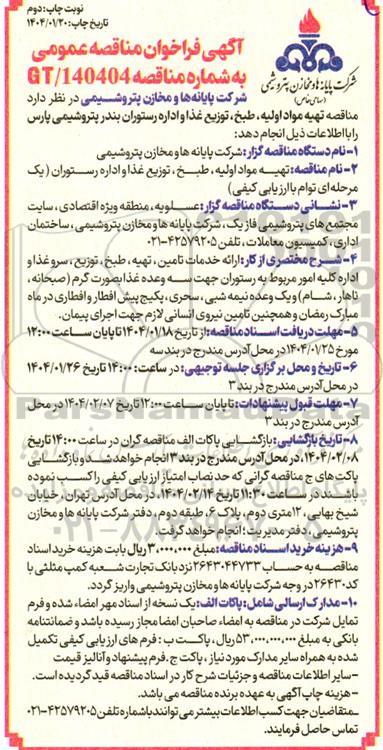 نوبت چاپ: دوم
تاریخ چاپ: ۱۴۰۴/۰۱/۲۰
شرکت پایانه‌ها و مخازن پتروشیمی
(سهامی خاص)
آگهی فراخوان مناقصه عمومی
به شماره مناقصه GT/140404
شرکت پایانه‌ها و مخازن پتروشیمی در نظر دارد
مناقصه تهیه مواد اولیه، طبخ، توزیع غذا و اداره رستوران بندر پتروشیمی پارس
را با اطلاعات ذیل انجام دهد:
۱- نام دستگاه مناقصه گزار: شرکت پایانه ها و مخازن پتروشیمی
۲- نام مناقصه: تهیه مواد اولیه، طبخ، توزیع غذا و اداره رستوران (یک
مرحله ای توام با ارزیابی کیفی)
۳- نشانی دستگاه مناقصه گزار: عسلویه، منطقه ویژه اقتصادی، سایت
مجتمع های پتروشیمی فاز یک، شرکت پایانه ها و مخازن پتروشیمی، ساختمان
اداری، کمیسیون معاملات، تلفن ۴۲۵۷۹۲۰۵-۰۲۱
۴- شرح مختصری از کار: ارائه خدمات تامین، تهیه، طبخ، توزیع، سرو غذا و
اداره کلیه امور مربوط به رستوران جهت سه وعده غذا بصورت گرم (صبحانه،
ناهار، شام) و یک وعده نیمه شبی، سحری، پکیج پیش افطار و افطاری در ماه
مبارک رمضان و همچنین تامین نیروی انسانی لازم جهت اجرای پیمان.
۵- مهلت دریافت اسناد مناقصه: از تاریخ ۱۴۰۴/۰۱/۱۸ تا پایان ساعت ۱۲:۰۰
مورخ ۱۴۰۴/۰۱/۲۵ در محل آدرس مندرج در بند سه
۶- تاریخ و محل برگزاری جلسه توجیهی: در ساعت: ۱۴:۰۰ تاریخ ۱۴۰۴/۰۱/۲۶
در محل آدرس مندرج در بند ۳
۷- مهلت قبول پیشنهادات: تا پایان ساعت ۱۲:۰۰ تاریخ ۱۴۰۴/۰۲/۰۷ در محل
آدرس مندرج در بند ۳
۸- تاریخ بازگشایی: بازگشایی پاکات الف مناقصه گران در ساعت ۱۴:۰۰ تاریخ
۱۴۰۴/۰۲/۰۸، در محل آدرس مندرج در بند ۳ انجام خواهد شد و بازگشایی
پاکت های ج مناقصه گرانی که حد نصاب امتیاز ارزیابی کیفی را کسب نموده
باشند در ساعت ۱۱:۳۰ تاریخ ۱۴۰۴/۰۲/۱۴، در محل آدرس تهران، خیابان
شیخ بهایی، ۱۲ متری دوم، پلاک ۶، طبقه دوم، دفتر شرکت پایانه ها و مخازن
پتروشیمی، دفتر مدیریت؛ انجام خواهد گرفت.
۹- هزینه خرید اسناد مناقصه: مبلغ ۳,۰۰۰,۰۰۰ ریال بابت هزینه خرید اسناد
مناقصه به حساب ۲۶۴۳۰۴۴۷۳۳ نزد بانک تجارت شعبه کمپ مثلثی با
کد ۲۶۴۳۰ در وجه شرکت پایانه ها و مخازن پتروشیمی واریز گردد.
۱۰- مدارک ارسالی شامل: پاکات الف: یک نسخه از اسناد مهر امضاء شده و فرم
تمایل شرکت در مناقصه به امضاء صاحبان امضا مجاز رسیده باشد و ضمانتنامه
بانکی به مبلغ ۵۳,۰۰۰,۰۰۰,۰۰۰ ریال، پاکت ب: فرم های ارزیابی کیفی تکمیل
شده به همراه سایر مدارک مورد نیاز، پاکت ج. فرم پیشنهاد و آنالیز قیمت
- سایر اطلاعات مناقصه و جزئیات شرح کار در اسناد مناقصه قید گردیده است.
- هزینه چاپ آگهی به عهده برنده مناقصه می باشد.
- متقاضیان جهت کسب اطلاعات بیشتر می توانند با شماره تلفن ۴۲۵۷۹۲۰۵-۰۲۱
تماس حاصل فرمایند.